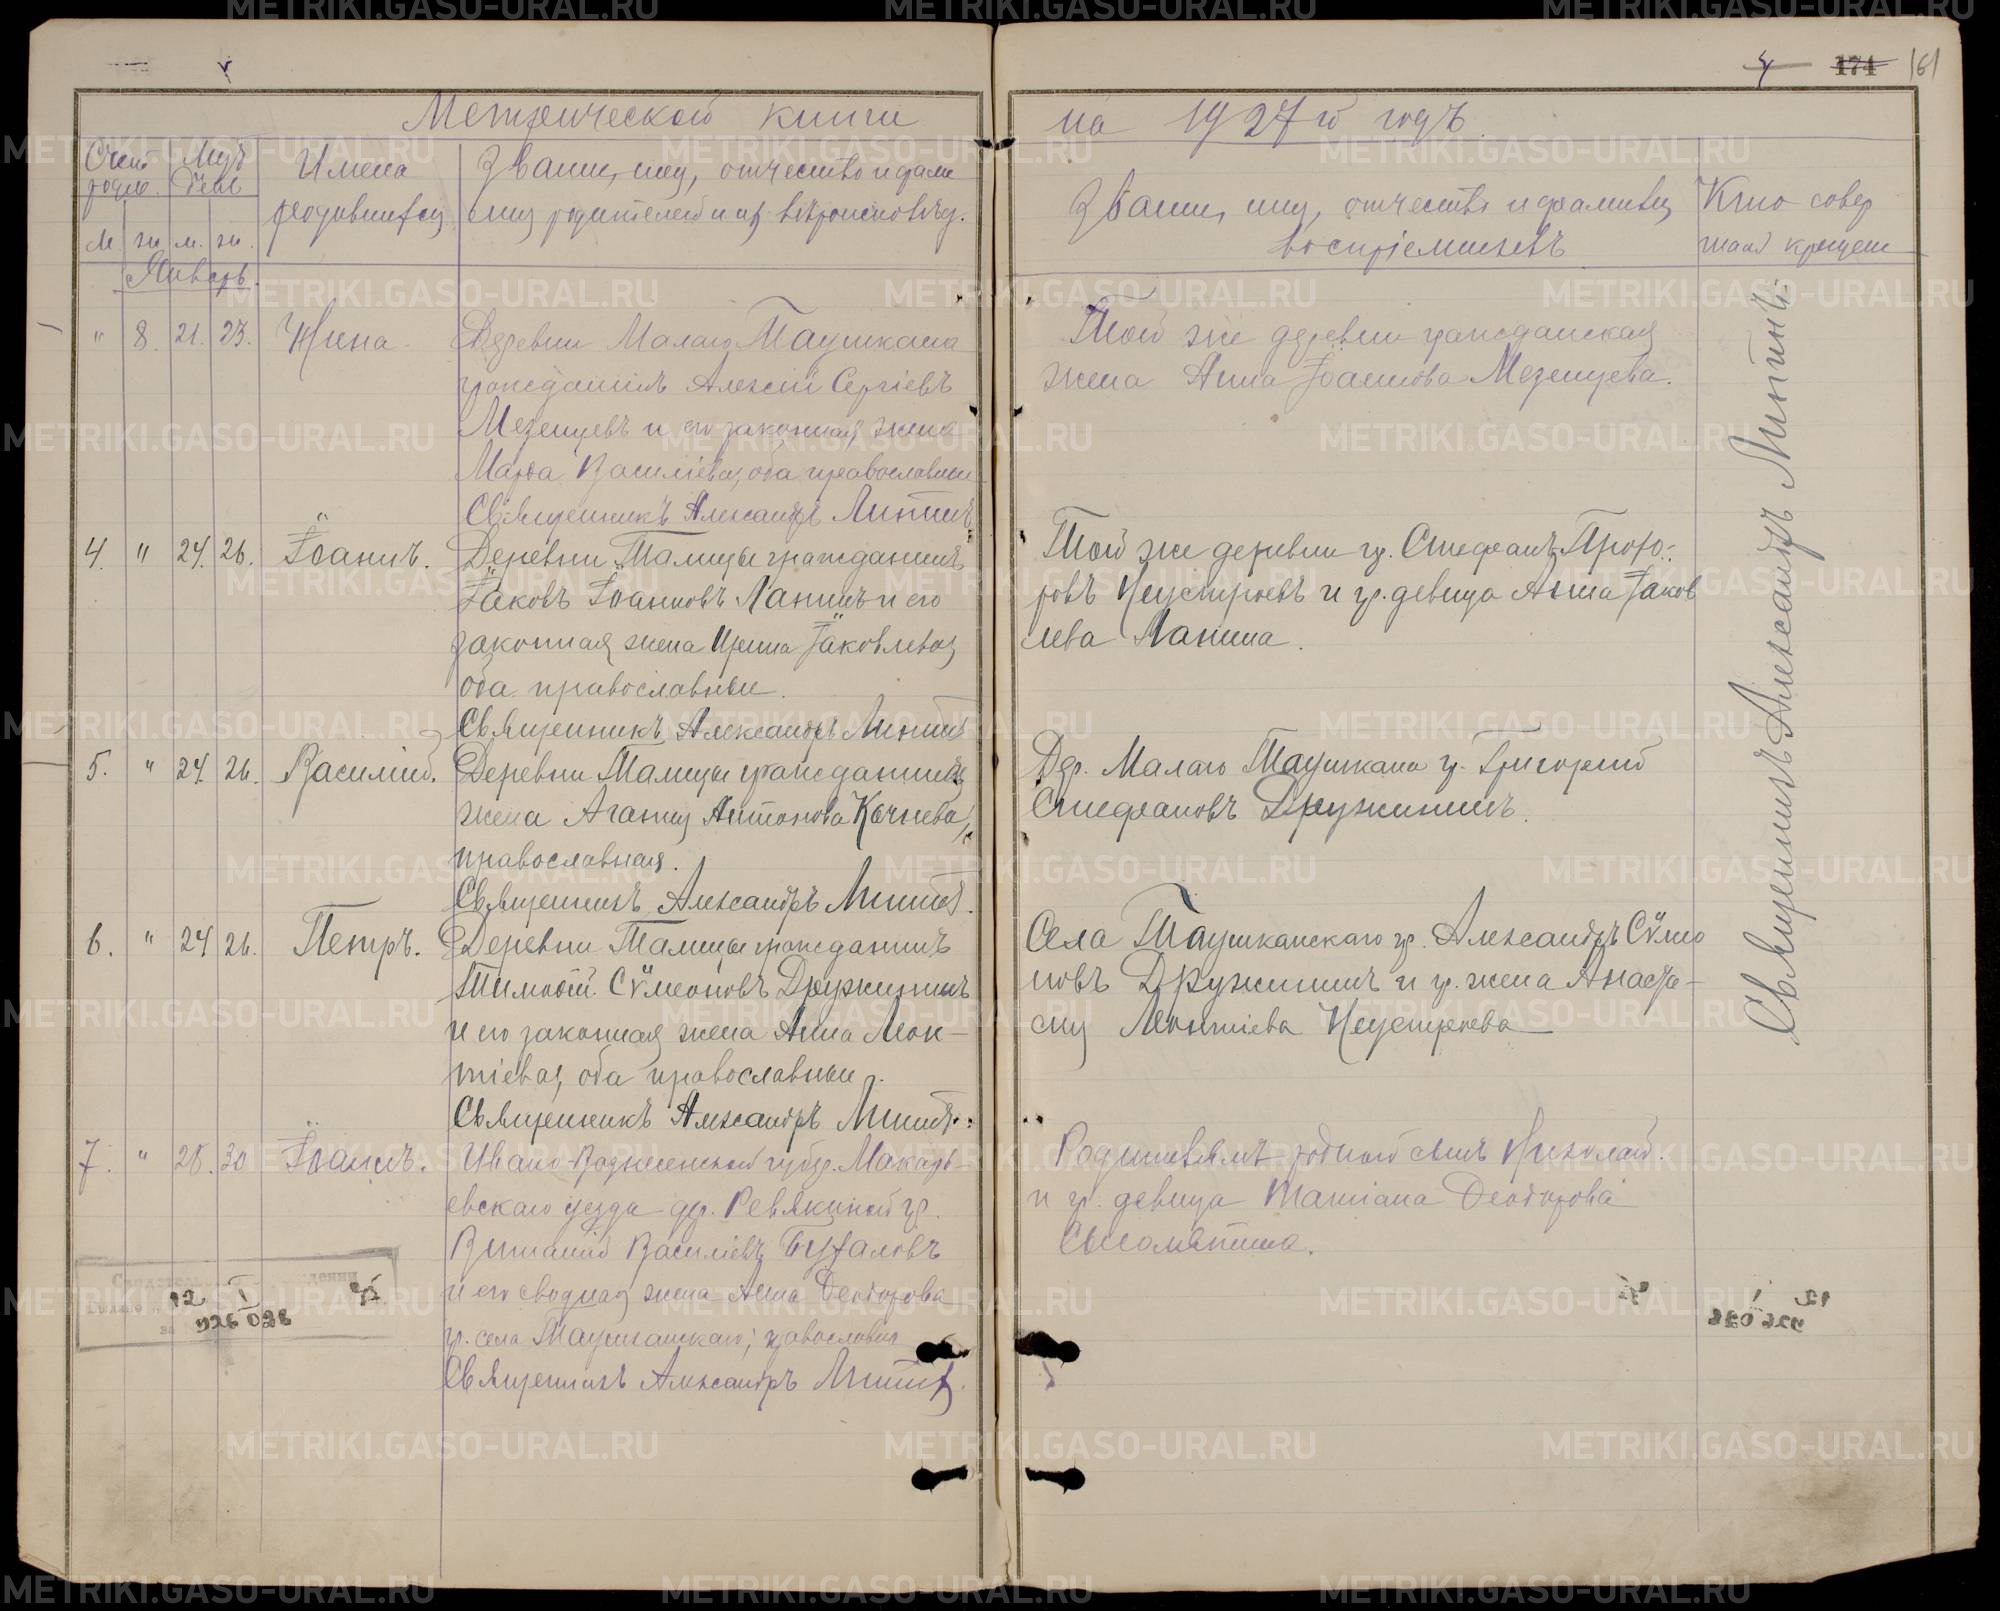 Метрической книги
на 1927й годъ
4 174 161
Счет родив. Мѣс. день Имена родившихся Званіе, имя, отчество и фами
лия родителей и ихъ вѣроисповѣд.
м. ж. м. ж.
Званіе, имя, отчество и фамилія воспріемниковъ
Кто совер
шалъ крещеніе
Январь.
" 8. 21. 23. Нина. Деревни Малаго Таушкана
гражданинъ Алексій Сергіевъ
Мезенцевъ и его законная жена
Марѳа Василіева, оба православные
Священникъ Александръ
Той же деревни гражданская
жена Анна Іоаннова Мезенцева.
4. " 24. 26. Іоаннъ. Деревни Талицы гражданинъ
Іаковъ Іоанновъ Ланинъ и его
законная жена Ирина Іаковлева,
оба православные.
Священникъ Александръ
Той же деревни гр. Стефанъ Прохо-
ровъ Неустроевъ и гр. девица Анна Іаков
лева Ланина.
5. " 24. 26. Василій. Деревни Талицы гражданинъ
жена Агапія Антонова Качнева,
православная.
Священникъ Александръ
Дер. Малаго Таушкана гр. Григорій
Стефановъ Дружининъ.
6. " 24 26. Петръ. Деревни Талицы гражданинъ
Тимоѳій Сѵмеоновъ Дружининъ
и его законная жена Анна Леон-
тіева, оба православные.
Священникъ Александръ
Села Таушканскаго гр. Александръ Сѵмео
новъ Дружининъ и гр. жена Анаста-
сія Леонтіева Неустроева
7. " 28. 30 Іоаннъ. Ивано-Вознесенской губер. Макарь-
евскаго уезда дер. Ревякиной гр.
Виталій Василіевъ
и его сводная жена Анна Ѳеодорова
гр. села Таушканскаго; православн
Священникъ Александръ
Родителямъ родной сынъ Николай.
и гр. девица Татіана Ѳеодорова
Сыромятина.
Священникъ Александръ
12 I
926 028
METRIKI.GASO-URAL.RU